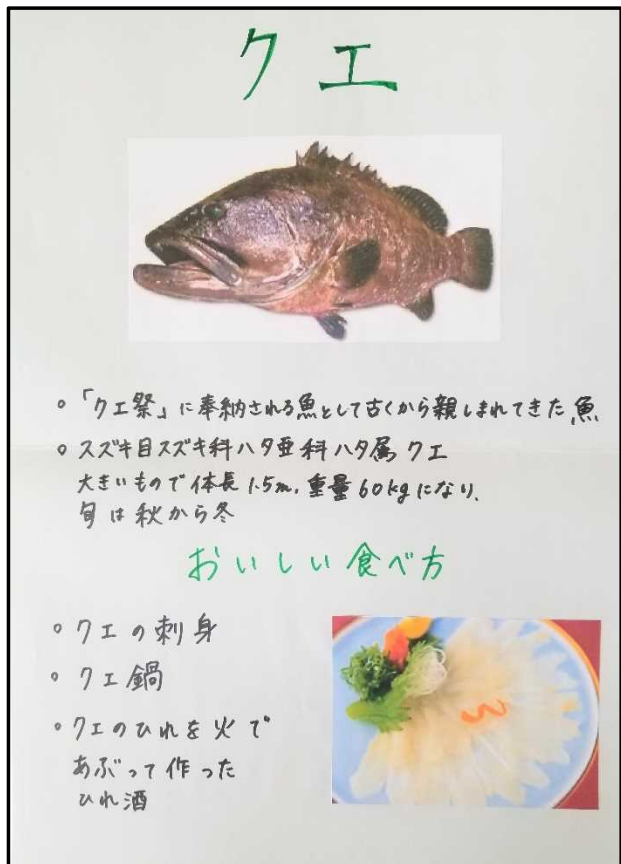 クエ
。「クエ祭」に奉納される魚として古くから親しまれてきた魚
。スズキ目スズキ科ハタ亜科ハタ属 クエ
大きいもので体長1.5m、重量60kgになり、
旬は秋から冬
おいしい食べ方
。クエの刺身
。クエ鍋
。クエのひれを火で
あぶって作った
ひれ酒